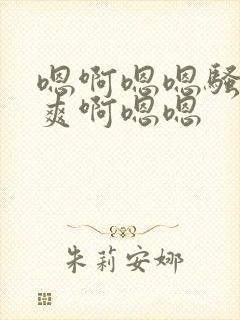 嗯啊嗯嗯骚
爽啊嗯嗯
朱莉安娜